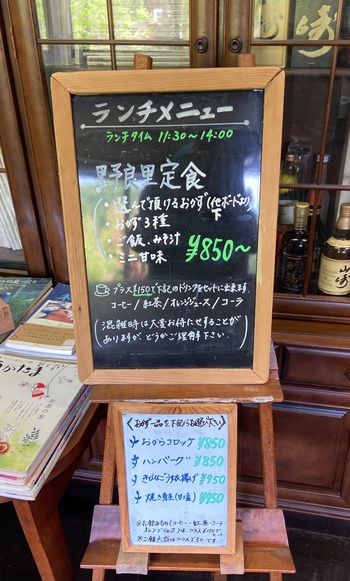 ランチメニュー
ランチタイム 11:30〜14:00
野良里定食
・選んで頂けるおかず(下ボードより)
・おかず3種
・ご飯、みそ汁
・ミニ甘味
¥850〜
プラス¥150で下記のドリンクをセットに出来ます
コーヒー/紅茶/オレンジジュース/コーラ
(混雑時は大変お待たせすることが
ありますが どうかご理解下さい)
おかず一品を下記からお選び下さい
おからコロッケ ¥850
ハンバーグ ¥850
¥950
¥950
※お飲みもの(コーヒー・紅茶・コーラ
オレンジジュース)は
山崎